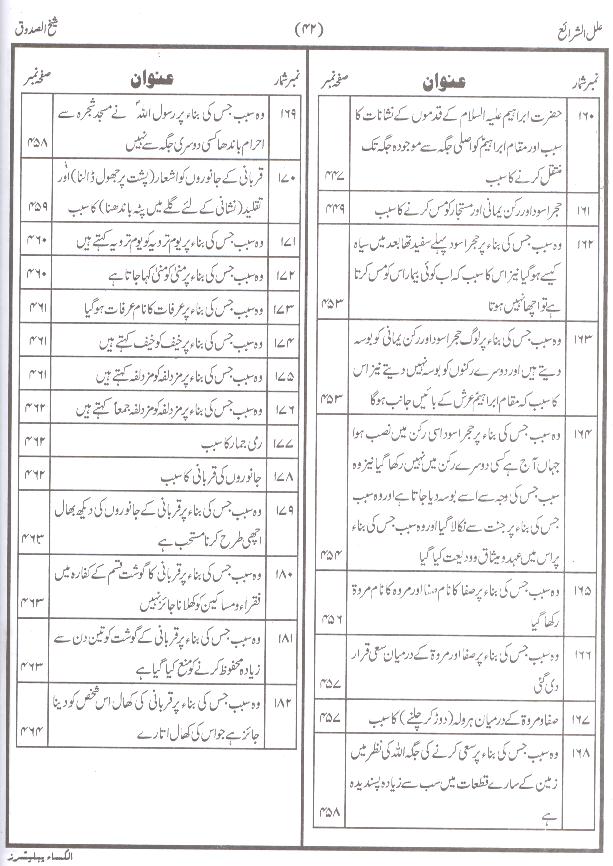 علل الشرائع
(۴۲)
شیخ الصدوق
نمبر شمار عنوان صفحہ نمبر
۱۶۰ حضرت ابراہیم علیہ السلام کے قدموں کے نشانات کا
سبب اور مقام ابراہیمؑ کو اصلی جگہ سے موجودہ جگہ تک
منتقل کرنے کا سبب ۴۴۷
۱۶۱ حجر اسود اور رکن یمانی اور مستجار کو مس کرنے کا سبب ۴۴۹
۱۶۲ وہ سبب جس کی بناء پر حجر اسود پہلے سفید تھا بعد میں سیاہ
کیسے ہوگیا نیز اس کا سبب کہ اب کوئی بیمار اس کو مس کرتا
ہے تو اچھا نہیں ہوتا ۴۵۳
۱۶۳ وہ سبب جس کی بناء پر لوگ حجر اسود اور رکن یمانی کو بوسہ
دیتے ہیں اور دوسرے رکنوں کو بوسہ نہیں دیتے نیز اس
کا سبب کہ مقام ابراہیمؑ عرش کے بائیں جانب ہوگا ۴۵۳
۱۶۴ وہ سبب جس کی بناء پر حجر اسود اسی رکن میں نصب ہوا
جہاں آج ہے کسی دوسرے رکن میں نہیں رکھا گیا نیز وہ
سبب جس کی وجہ سے اسے بوسہ دیا جاتا ہے اور وہ سبب
جس کی بناء پر جنت سے نکالا گیا اور وہ سبب جس کی بناء
پر اس میں عہد و میثاق و ودیعت کیا گیا ۴۵۴
۱۶۵ وہ سبب جس کی بناء پر صفا کا نام صفا اور مروہ کا نام مروۃ
رکھا گیا ۴۵۶
۱۶۶ وہ سبب جس کی بناء پر صفا اور مروۃ کے درمیان سعی قرار
دی گئی ۴۵۷
۱۶۷ صفا و مروۃ کے درمیان ہرولہ (دوڑ کر چلنے) کا سبب ۴۵۷
۱۶۸ وہ سبب جس کی بناء پر سعی کرنے کی جگہ اللہ کی نظر میں
زمین کے سارے قطعات میں سب سے زیادہ پسندیدہ
ہے ۴۵۸
نمبر شمار عنوان صفحہ نمبر
۱۶۹ وہ سبب جس کی بناء پر رسول اللہؐ نے مسجد شجرہ سے
احرام باندھا کسی دوسری جگہ سے نہیں ۴۵۸
۱۷۰ قربانی کے جانوروں کو اشعار (پشت پر جھول ڈالنا) اور
تقلید (نشانی کے لئے گلے میں پٹہ باندھنا) کا سبب ۴۵۹
۱۷۱ وہ سبب جس کی بناء پر یوم ترویہ کو یوم ترویہ کہتے ہیں ۴۶۰
۱۷۲ وہ سبب جس کی بناء پر منیٰ کو منیٰ کہا جاتا ہے ۴۶۰
۱۷۳ وہ سبب جس کی بناء پر عرفات کا نام عرفات ہوگیا ۴۶۱
۱۷۴ وہ سبب جس کی بناء پر خیف کو خیف کہتے ہیں ۴۶۱
۱۷۵ وہ سبب جس کی بناء پر مزدلفہ کو مزدلفہ کہتے ہیں ۴۶۱
۱۷۶ وہ سبب جس کی بناء پر مزدلفہ کو مزدلفہ جمعاً کہتے ہیں ۴۶۲
۱۷۷ رمی جمار کا سبب ۴۶۲
۱۷۸ جانوروں کی قربانی کا سبب ۴۶۲
۱۷۹ وہ سبب جس کی بناء پر قربانی کے جانوروں کی دیکھ بھال
اچھی طرح کرنا مستحب ہے ۴۶۳
۱۸۰ وہ سبب جس کی بناء پر قربانی کا گوشت قسم کے کفارہ میں
فقراء و مساکین کو کھلانا جائز نہیں ۴۶۳
۱۸۱ وہ سبب جس کی بناء پر قربانی کے گوشت کو تین دن سے
زیادہ محفوظ کرنے کو منع کیا گیا ہے ۴۶۳
۱۸۲ وہ سبب جس کی بناء پر قربانی کی کھال اس شخص کو دینا
جائز ہے جو اس کی کھال اتارے ۴۶۴
الکساء پبلیشرز